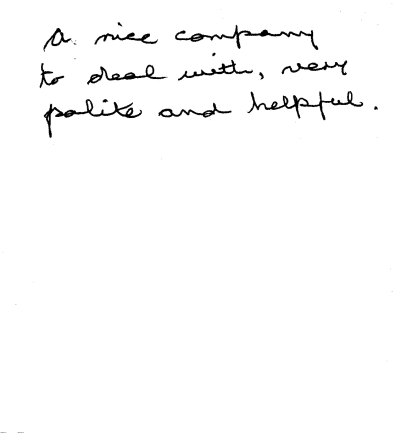 A nice company
to deal with, very
polite and helpful.